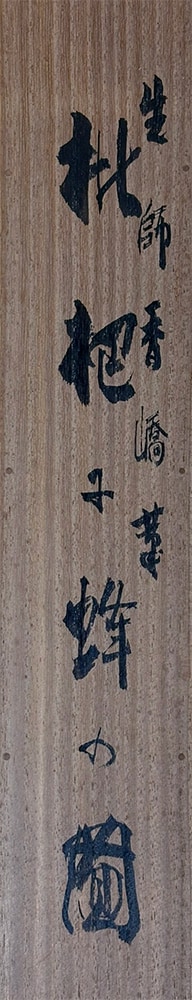 先師香嶠筆
枇杷に蜂の圖